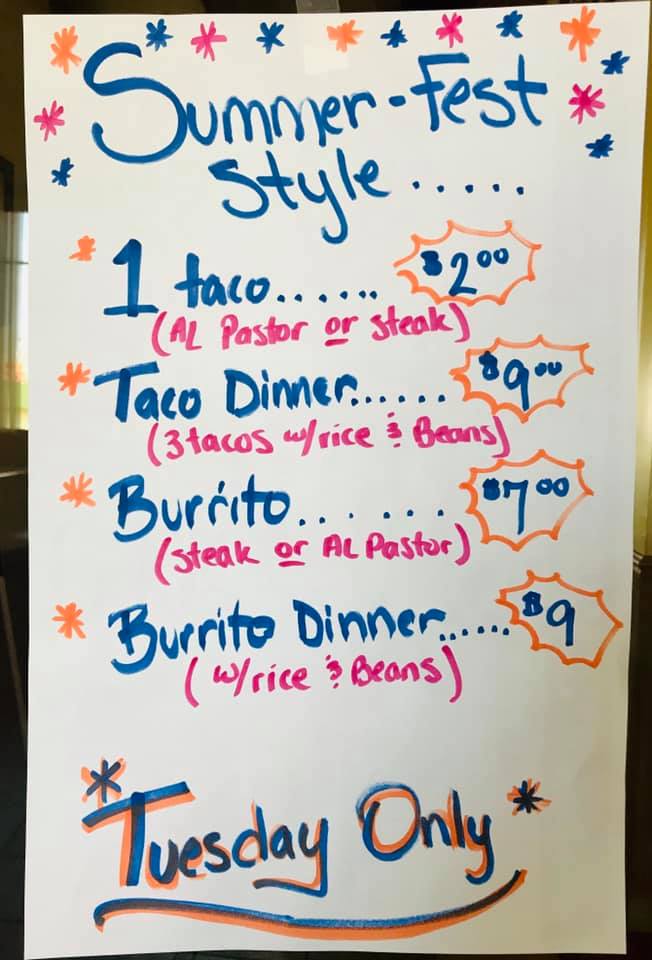 Summer-Fest
Style.....
1 taco...... $2.00
(AL Pastor or steak)
Taco Dinner...... $9.00
(3 tacos w/rice & Beans)
Burrito....... $7.00
(steak or AL Pastor)
Burrito Dinner...... $9
(w/rice & Beans)
*Tuesday Only*